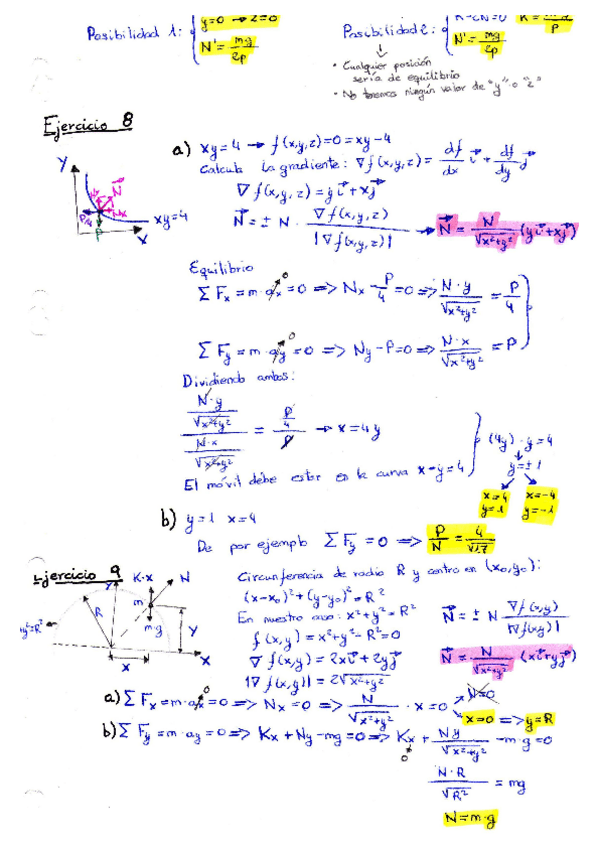 Posibilidad 1: { y=0 → z=0
N' = mg/2p
Posibilidad 2: { K-CN=0
N' = mg/2p
• Cualquier posición
sería de equilibrio
• No tenemos ningún valor de "y" o "z"
Ejercicio 8
Y
N
P/4
P
X
xy=4
a) xy=4 → f(x,y,z)=0=xy-4
Calcula la gradiente: ∇f(x,y,z) = df/dx i + df/dy j
∇f(x,y,z) = yi + xj
N = ± N · ∇f(x,y,z)/|∇f(x,y,z)| → N = N/√(x²+y²) (yi+xj)
Equilibrio
ΣFx = m·ax = 0 => Nx - P/4 = 0 => N·y/√(x²+y²) = P/4
ΣFy = m·ay = 0 => Ny - P = 0 => N·x/√(x²+y²) = P
Dividiendo ambos:
(N·y/√(x²+y²))/(N·x/√(x²+y²)) = (P/4)/P → x=4y
El móvil debe estar en la curva x·y=4
(4y)·y=4
y=±1
x=4 x=-4
y=1 y=-1
b) y=1 x=4
De por ejemplo ΣFy = 0 => P/N = 4/√17
Ejercicio 9
K·x N
Y
m
R
m·g
Y
X
x
Circunferencia de radio R y centro en (x₀,y₀):
(x-x₀)²+(y-y₀)²=R²
En nuestro caso: x²+y²=R²
f(x,y) = x²+y²-R²=0
∇f(x,y) = 2xi+2yj
|∇f(x,y)| = 2√(x²+y²)
N = ± N ∇f(x,y)/|∇f(x,y)|
N = N/√(x²+y²) (xi+yj)
a) ΣFx=m·ax=0 => Nx=0 => N/√(x²+y²) · x=0
N=0
x=0 => y=R
b) ΣFy=m·ay=0 => Kx+Ny-mg=0 => Kx + Ny/√(x²+y²) - m·g=0
0
N·R/√R² = mg
N=m·g